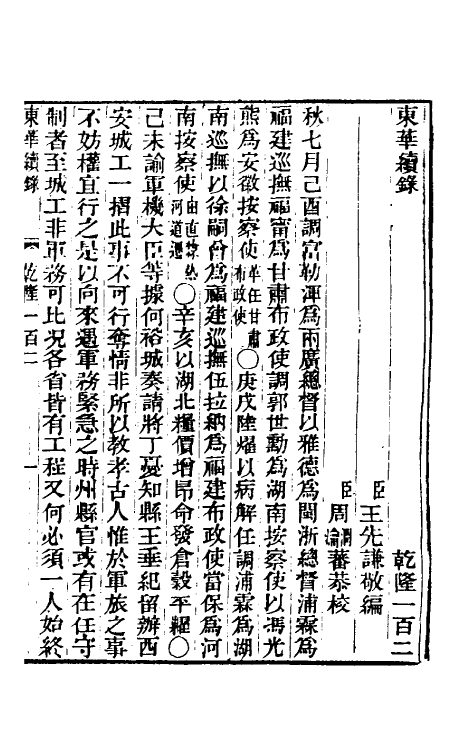 東華續錄　乾隆一百二
臣王先謙敬編
臣周潤蕃周瀹蕃恭校
秋七月己酉調富勒渾爲兩廣總督以雅德爲閩浙總督浦霖爲
福建巡撫福甯爲甘肅布政使調郭世勳爲湖南按察使以馮光
熊爲安徽按察使布政使辛任甘肅〇庚戌陸燿以病解任調浦霖爲湖
南巡撫以徐嗣曾爲福建巡撫伍拉納爲福建布政使當保爲河
南按察使由直隸熱河道遷〇辛亥以湖北糧價增昂命發倉穀平糶〇
己未諭軍機大臣等據何裕城奏請將丁憂知縣王垂紀留辦西
安城工一摺此事不可行奪情非所以教孝古人惟於軍旅之事
不妨權宜行之是以向來遇軍務緊急之時州縣官或有在任守
制者至城工非軍務可比況各省皆有工程又何必須一人始終
東華續錄　乾隆一百二　一